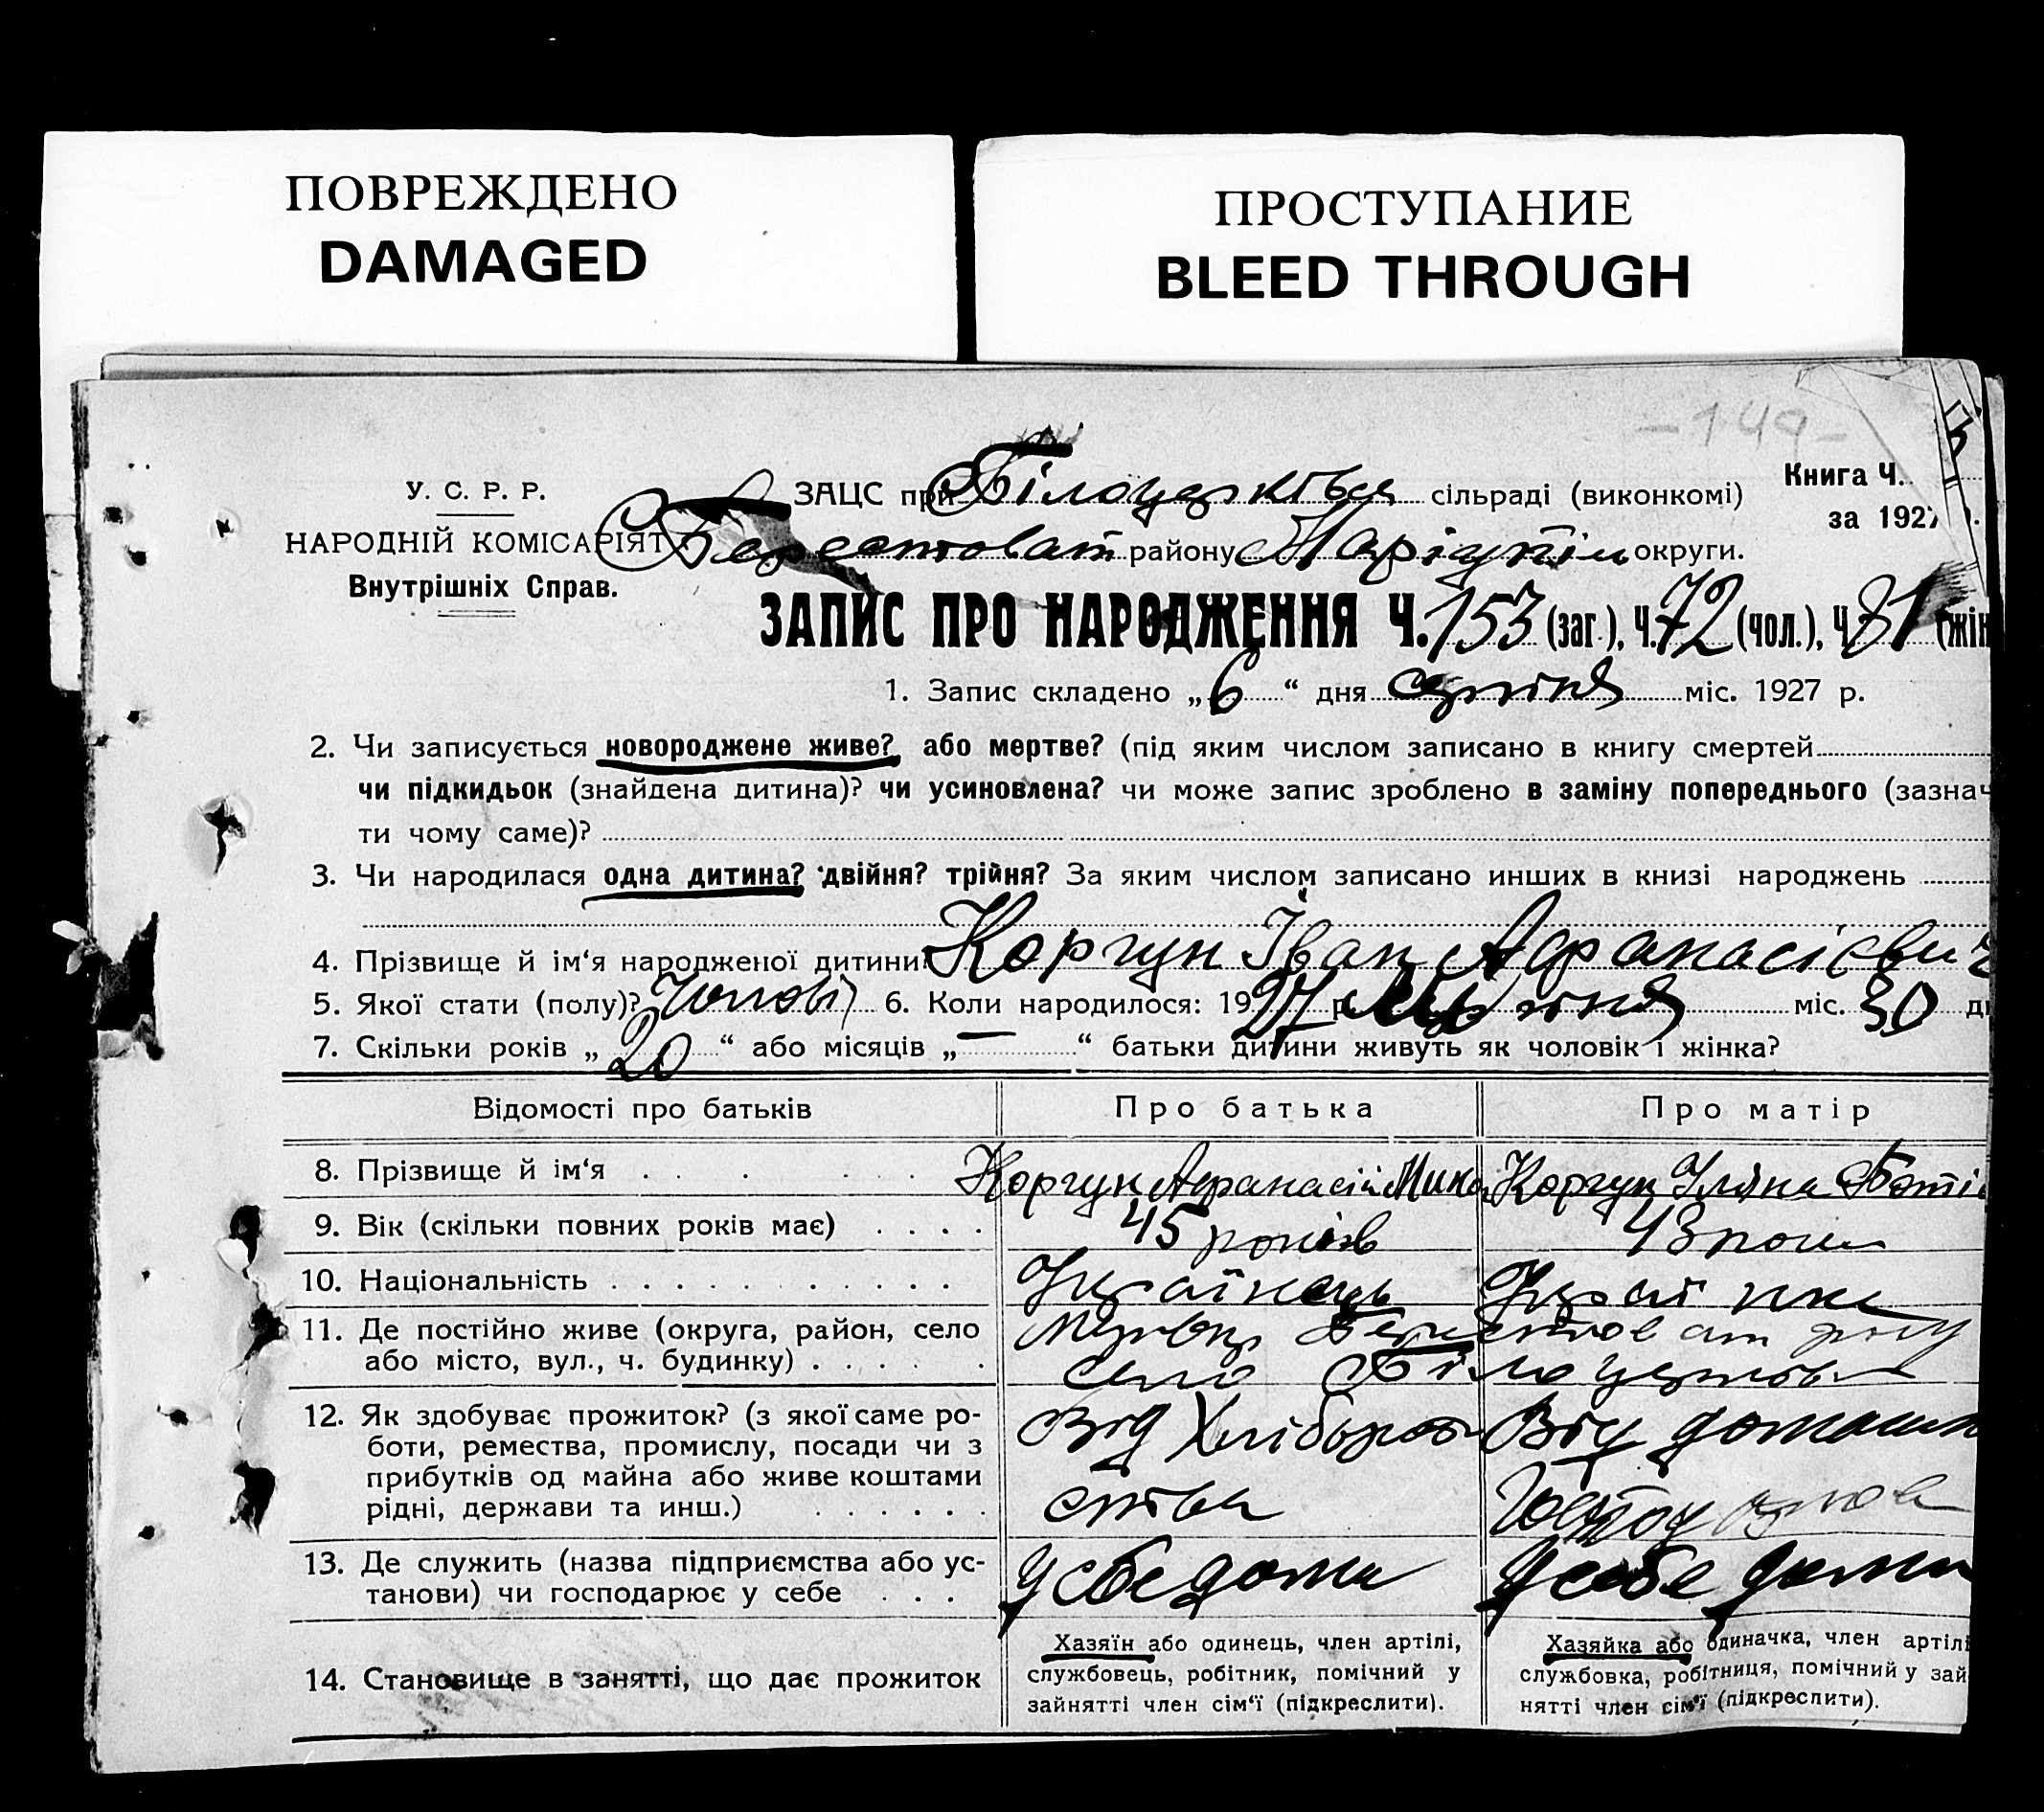 ПОВРЕЖДЕНО
DAMAGED
ПРОСТУПАНИЕ
BLEED THROUGH
-149-
У. С. Р. Р.
НАРОДНІЙ КОМІСАРІЯТ
Внутрішніх Справ.
Книга Ч.
за 1927
ЗАЦС при сільраді (виконкомі)
Берестоват району Маріупіль округи.
ЗАПИС ПРО НАРОДЖЕННЯ Ч. 153 (заг.), Ч. 72 (чол.), Ч. 81 (жін
1. Запис складено „ 6 “ дня серпня міс. 1927 р.
2. Чи записується новороджене живе? або мертве? (під яким числом записано в книгу смертей
чи підкидьок (знайдена дитина)? чи усиновлена? чи може запис зроблено в заміну попереднього (зазнач
ти чому саме)?
3. Чи народилася одна дитина? двійня? трійня? За яким числом записано инших в книзі народжень
4. Прізвище й ім‘я народженої дитини? Коргун Іван Афанасієвич
5. Якої стати (полу)? Чолові 6. Коли народилося: 1927 р. міс. 30 д
7. Скільки років „ 20 “ або місяців „ — “ батьки дитини живуть як чоловік і жінка?
Відомості про батьків Про батька Про матір
8. Прізвище й ім‘я Коргун Афанасій Мико Коргун Уляна
9. Вік (скільки повних років має) 45 років 43 роки
10. Національність Українець Українка
11. Де постійно живе (округа, район, село Берестоват
або місто, вул., ч. будинку) село
12. Як здобуває прожиток? (з якої саме ро- Від Хлібороб Від домашн
боти, ремества, промислу, посади чи з
прибутків од майна або живе коштами ства
рідні, держави та инш.)
13. Де служить (назва підприємства або ус- У себе дома У себе дома
танови) чи господарює у себе
14. Становище в занятті, що дає прожиток
Хазяїн або одинець, член артілі,
службовець, робітник, помічний у
зайнятті член сім‘ї (підкреслити).
Хазяйка або одиначка, член артілі
службовка, робітниця, помічний у зай
нятті член сім‘ї (підкреслити).